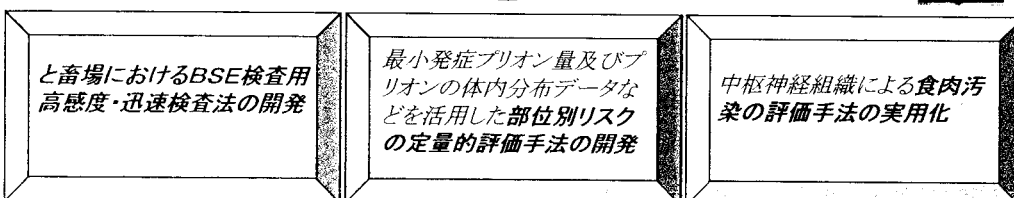 と畜場におけるBSE検査用
高感度・迅速検査法の開発
最小発症プリオン量及びプ
リオンの体内分布データな
どを活用した部位別リスク
の定量的評価手法の開発
中枢神経組織による食肉汚
染の評価手法の実用化